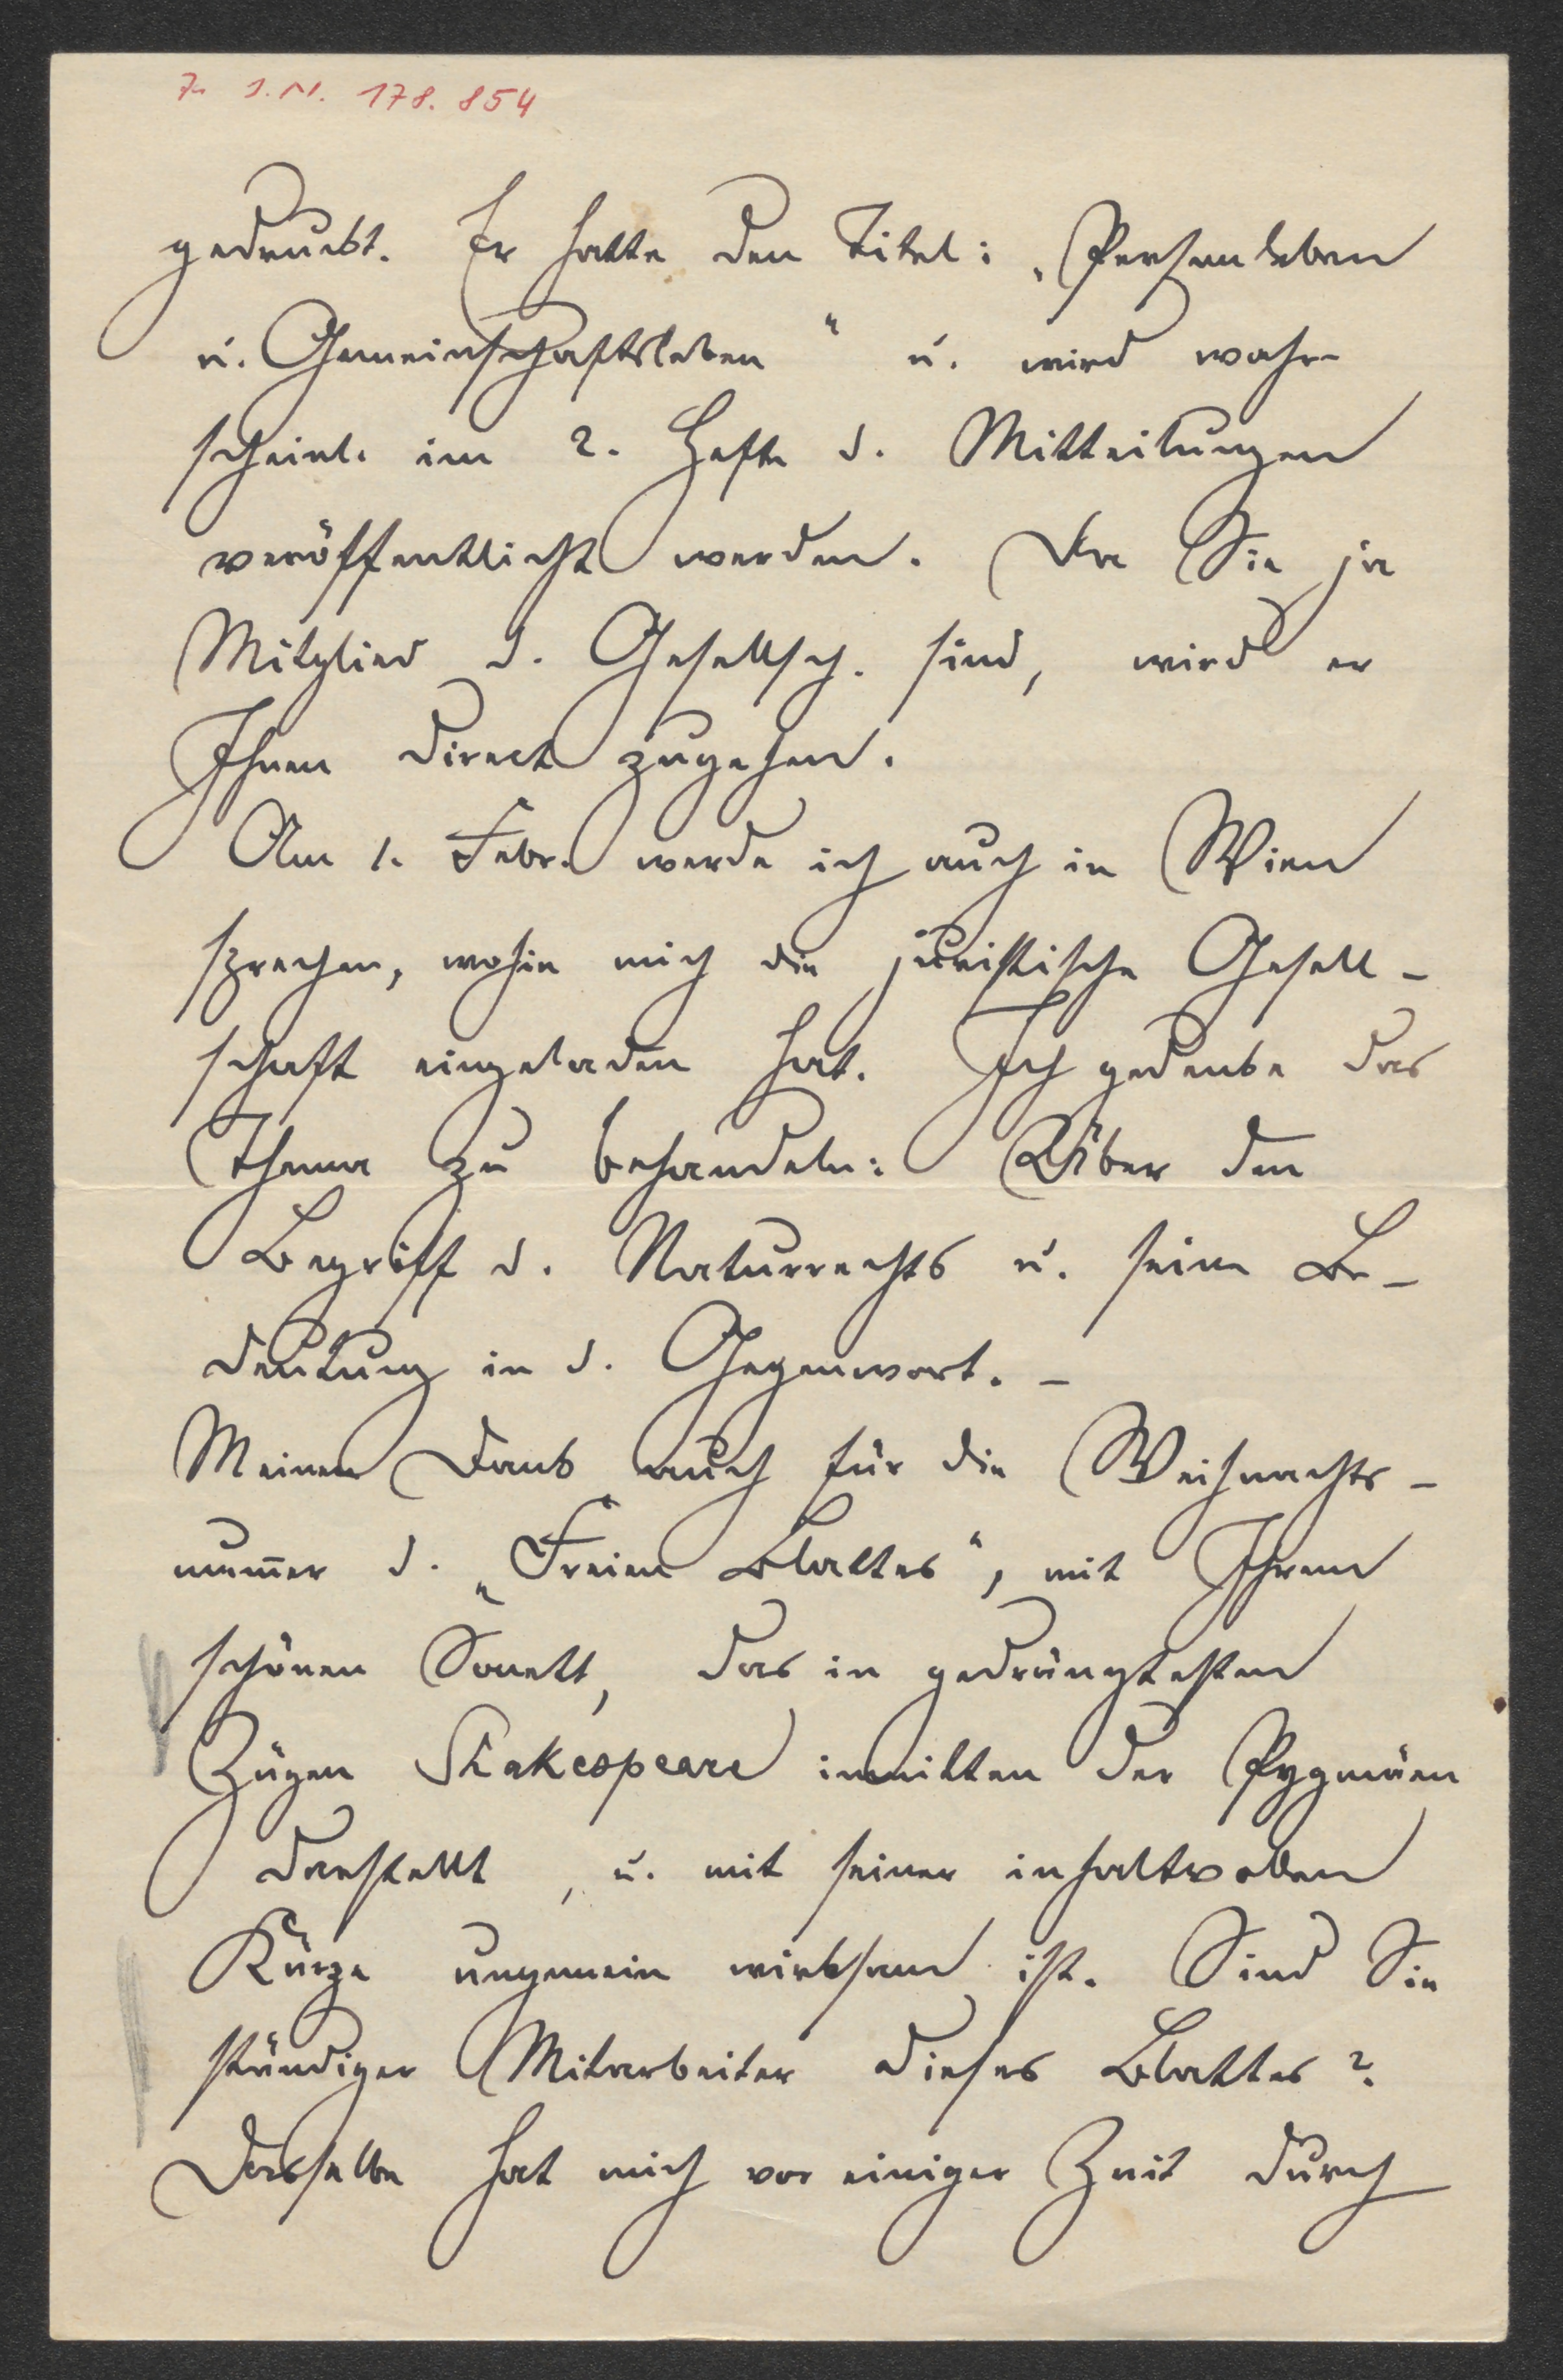 J. N. 178.854
gedruckt. Er hatte den Titel: „Personleben
u. Gemeinschaftsleben“ u. wird wahr-
scheinl. im 2. Hefte d. Mitteilungen
veröffentlicht werden. Da Sie ja
Mitglied d. Gesellsch. sind, wird er
Ihnen direct zugehen.
Am 1. Febr. werde ich auch in Wien
sprechen, wohin mich die juristische Gesell-
schaft eingeladen hat. Ich gedenke das
Thema zu behandeln: Über den
Begriff d. Naturrechts u. seine Be-
deutung in d. Gegenwart. –
Meinen Dank auch für die Weihnachts-
num̄er d. „Freien Blattes“, mit Ihrem
schönen Sonett, das in gedrängtesten
Zügen Shakespeare inmitten der Pygmäen
darstellt, u. mit seiner inhaltvollen
Kürze ungemein wirksam ist. Sind Sie
ständiger Mitarbeiter dieses Blattes?
Dasselbe hat mich vor einiger Zeit durch